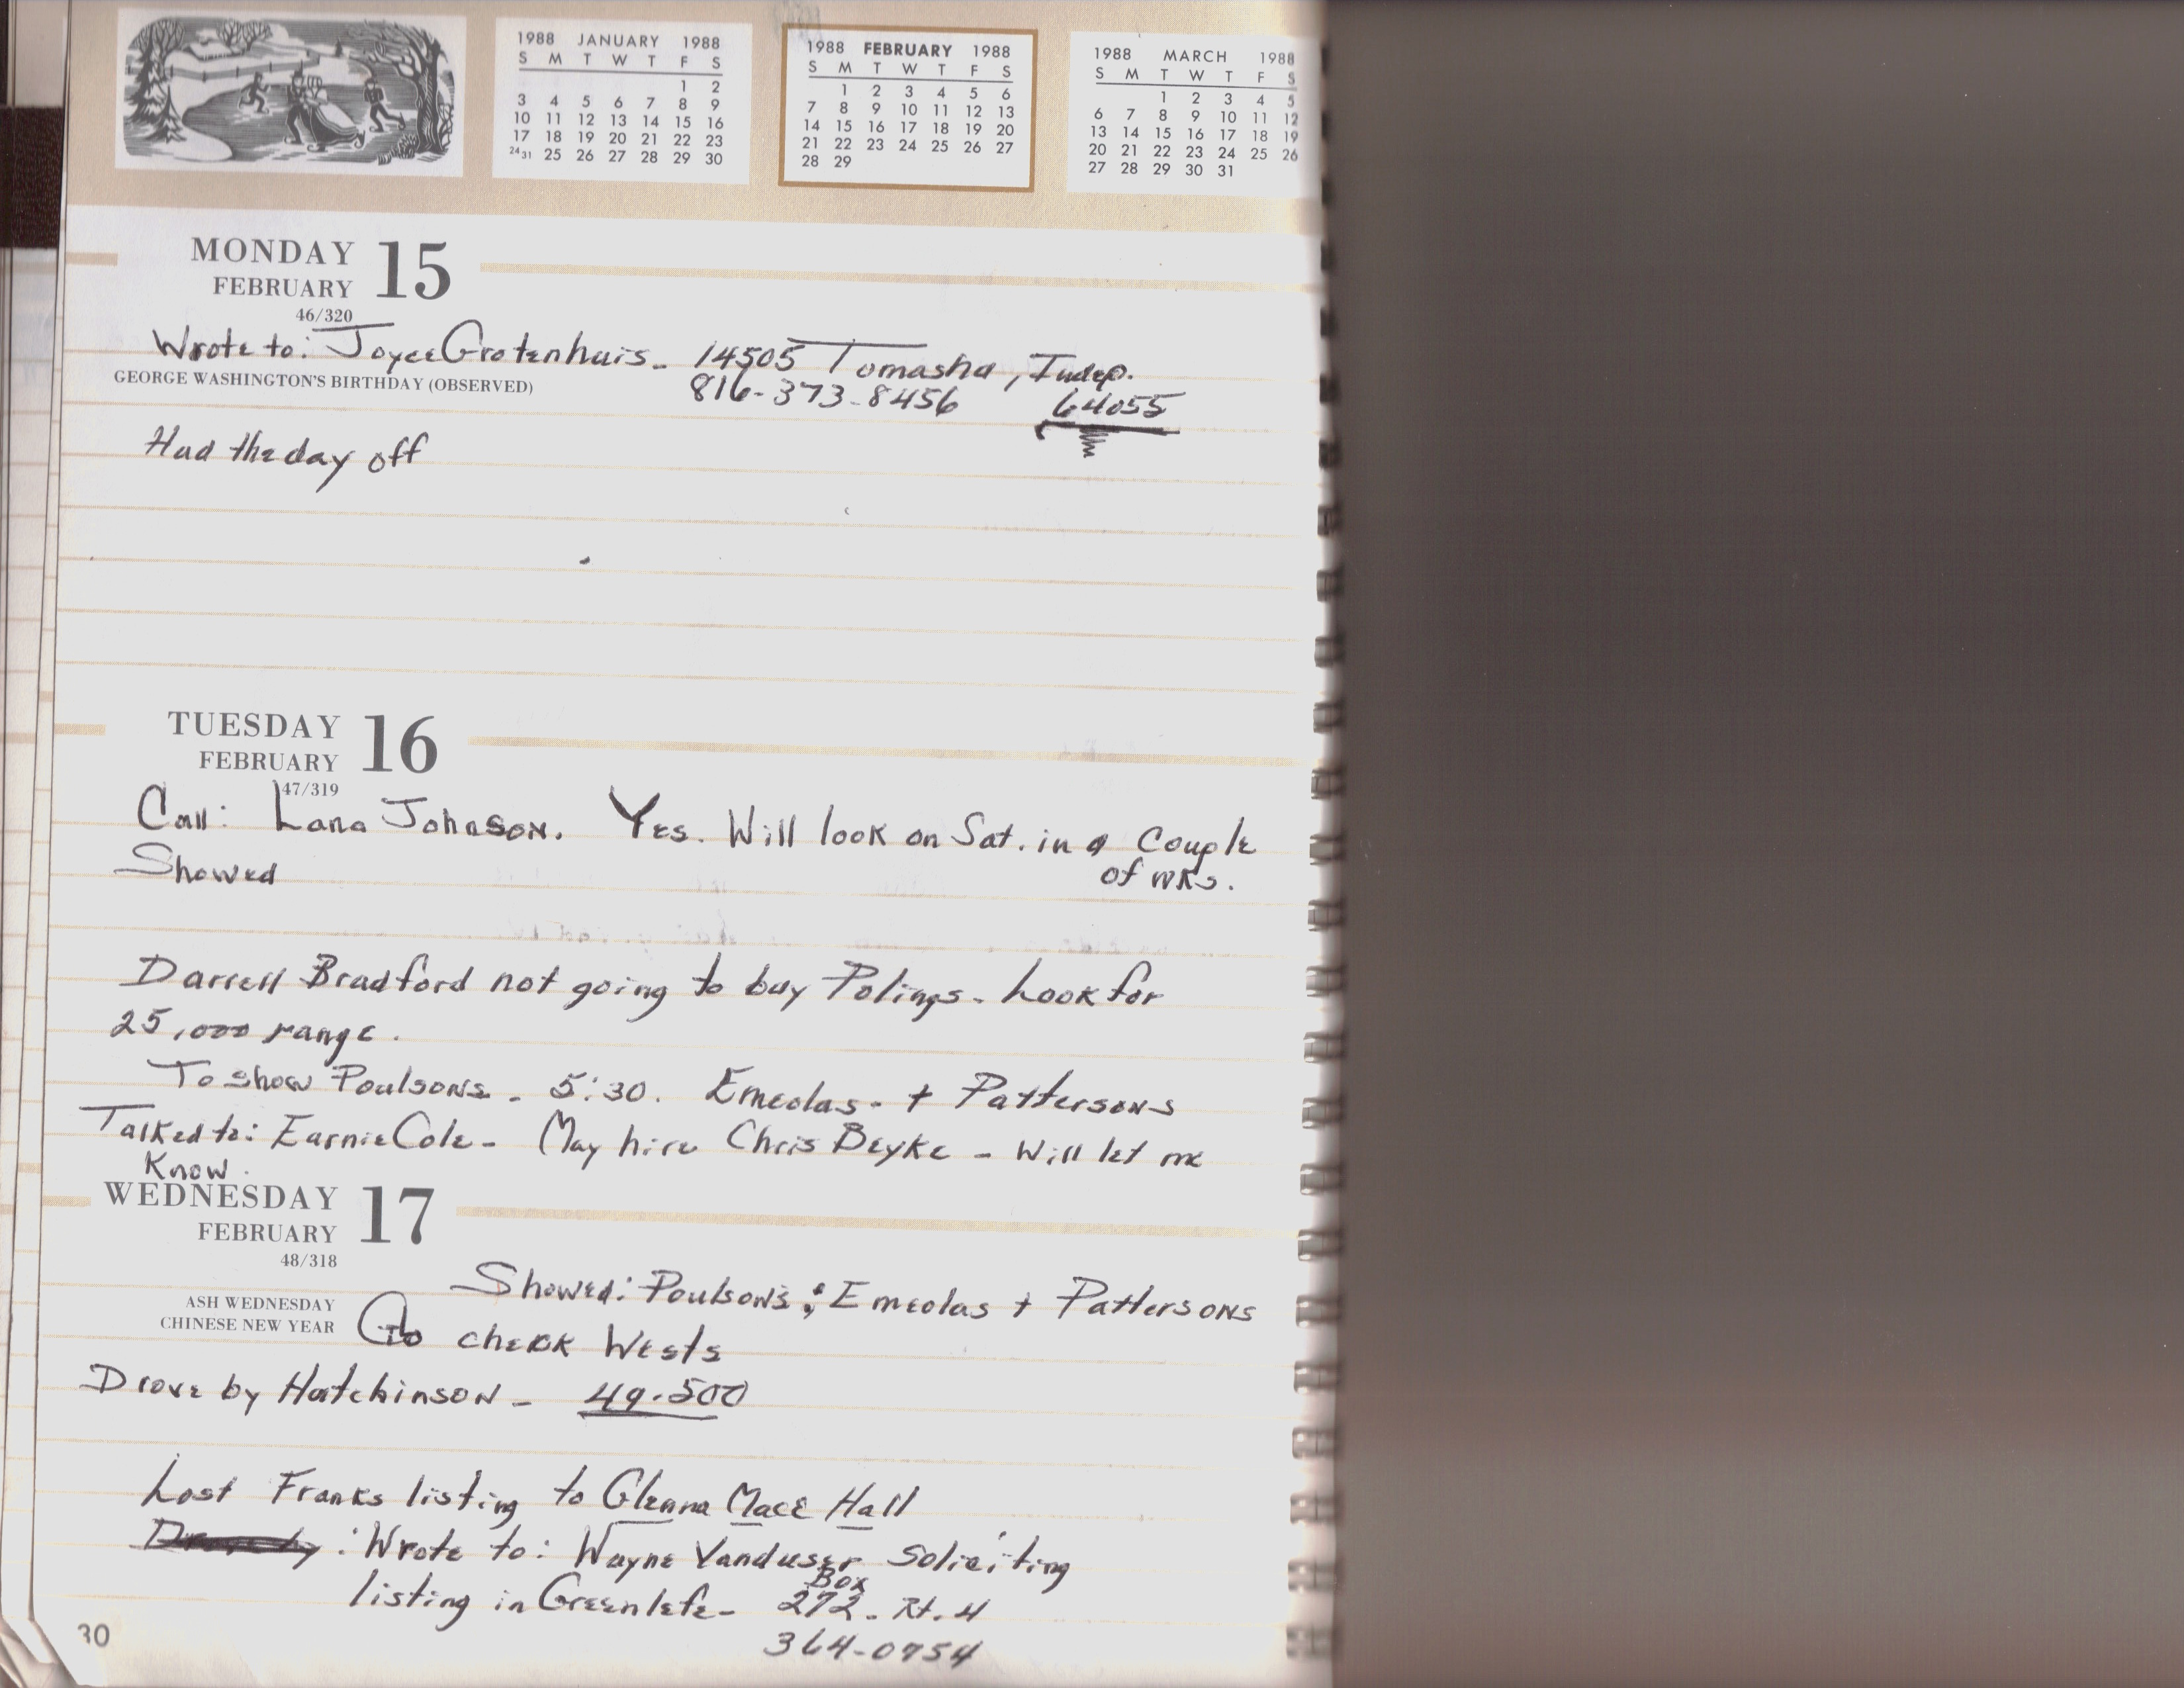 1988 JANUARY 1988
S M T W T F S
1 2
3 4 5 6 7 8 9
10 11 12 13 14 15 16
17 18 19 20 21 22 23
24 31 25 26 27 28 29 30
1988 FEBRUARY 1988
S M T W T F S
1 2 3 4 5 6
7 8 9 10 11 12 13
14 15 16 17 18 19 20
21 22 23 24 25 26 27
28 29
1988 MARCH 1988
S M T W T F S
1 2 3 4 5
6 7 8 9 10 11 12
13 14 15 16 17 18 19
20 21 22 23 24 25 26
27 28 29 30 31
MONDAY 15
FEBRUARY
46/320
Wrote to: Joyce Grotenhuis - 14505 Tomasha, Indep.
GEORGE WASHINGTON'S BIRTHDAY (OBSERVED)
816-373-8456 64055
Had the day off
TUESDAY 16
FEBRUARY
47/319
Call: Lana Johnson. Yes. Will look on Sat. in a couple
Showed of wks.
Darrell Bradford not going to buy Polings - Look for
25,000 range.
To show Poulsons - 5:30. Emeolas - + Pattersons
Talked to: Earnie Cole - May hire Chris Beyke - will let me
Know.
WEDNESDAY 17
FEBRUARY
48/318
Showed: Poulson's ; Emeolas + Pattersons
ASH WEDNESDAY
CHINESE NEW YEAR
To check Wests
Drove by Hatchinson - 49.500
Lost Franks listing to Glenna Mace Hall
: Wrote to: Wayne Vanduser soliciting
Box
listing in Greenlefe - 272 - Rt. 4
364-0754
30